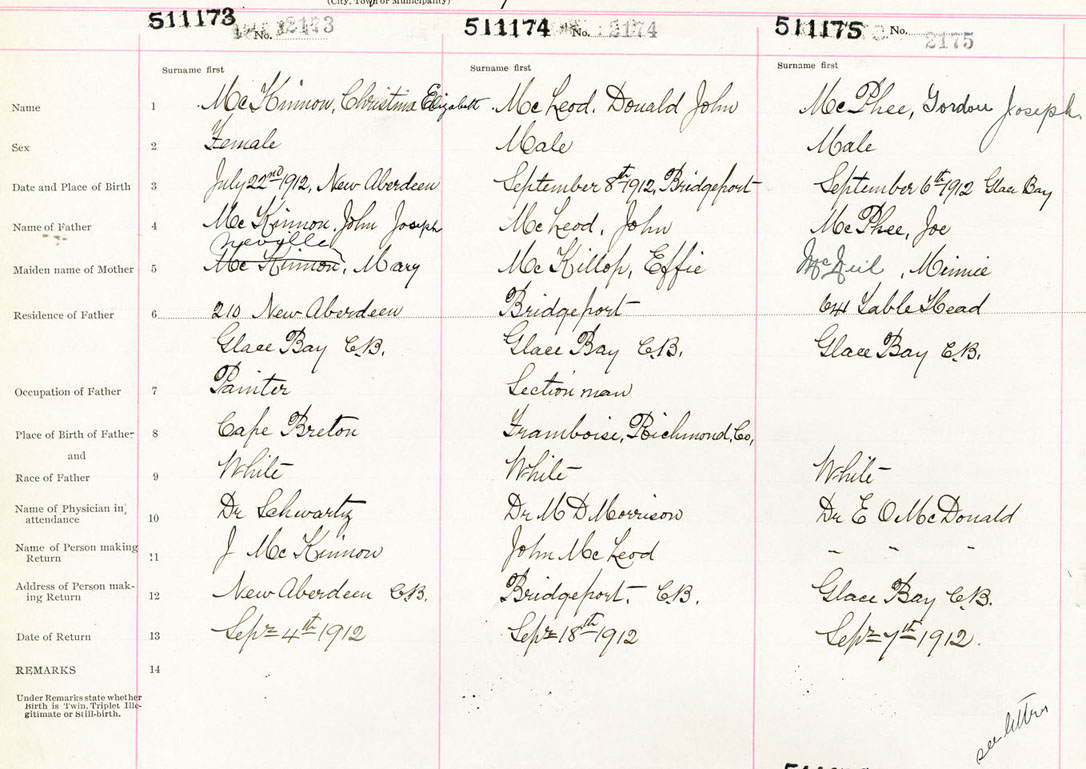 (City, Town or Municipality)
511173 No. 2173 511174 No. 2174 511175 No. 2175
Surname first Surname first Surname first
Name 1 McKinnon, Christina Elizabeth McLeod. Donald John McPhee, Gordon Joseph
Sex 2 Female Male Male
Date and Place of Birth 3 July 22nd 1912, New Aberdeen September 8th 1912, Bridgeport September 6th 1912 Glace Bay
Name of Father 4 McKinnon, John Joseph McLeod, John McPhee, Joe
Neville
Maiden name of Mother 5 McKinnon, Mary McKillop, Effie McNeil, Minnie
Residence of Father 6 210 New Aberdeen Bridgeport 641 Sable Head
Glace Bay C.B. Glace Bay C.B. Glace Bay C.B.
Occupation of Father 7 Painter Section man
Place of Birth of Father 8 Cape Breton Framboise, Richmond, Co,
and
Race of Father 9 White White White
Name of Physician in attendance 10 Dr Schwartz Dr M D Morrison Dr E O McDonald
Name of Person making Return 11 J McKinnon John McLeod " " "
Address of Person making Return 12 New Aberdeen C.B. Bridgeport. C.B. Glace Bay C.B.
Date of Return 13 Sepr 4th 1912 Sepr 18th 1912 Sepr 7th 1912.
REMARKS 14
Under Remarks state whether
Birth is Twin, Triplet Ille-
gitimate or Still-birth.
see letters